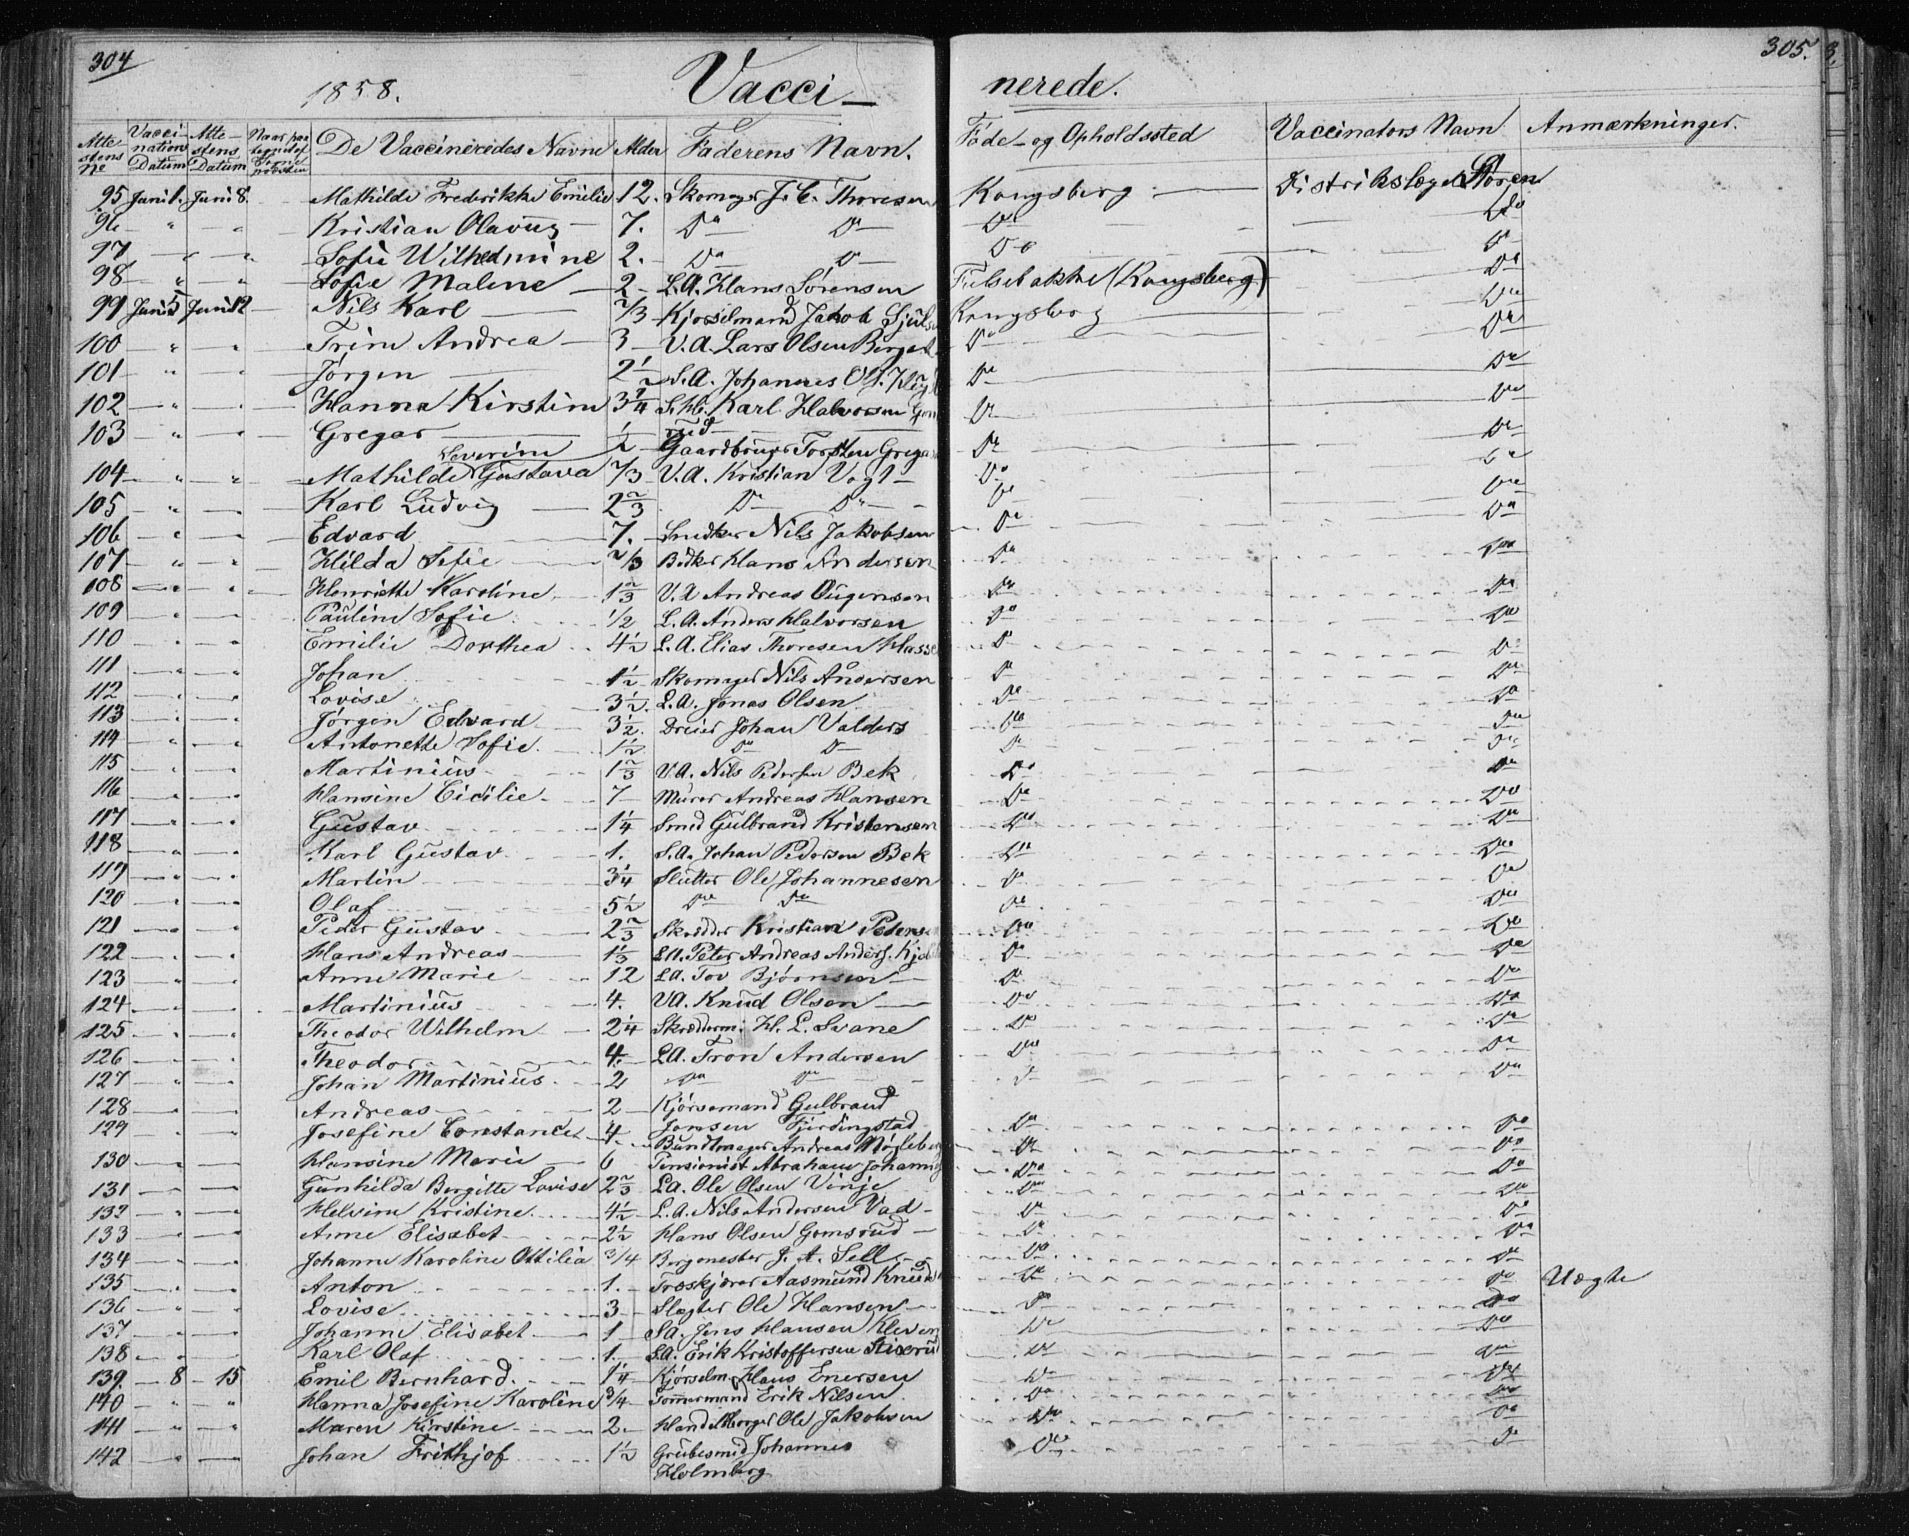 304
1858.
Vacci-
nerede.
305.
Atte-stens No
Vacci-nations Datum
Atte-stens Datum
De Vaccineredes Navne
Alder
Faderens Navn.
Føde- og Opholdssted
Vaccinators Navn
Anmærkninger.
95 Juni 1. Juni 8. Mathilde Frederikke Emilie 12. Skomager J. C. Thoresen Kongsberg Distriktslæge
96 " " Kristian Olavus 7. Do Do Do Do
97 " " Sofie Wilhelmine 2. Do Do Do Do
98 " " Sofie Malene 2 L.A. Hans Sørensen (Kongsberg) Do
99 Juni 5 Juni 12 Nils Karl 2/3 Kjørselmand Jakob Kongsberg Do
100 " " Trine Andrea 3 V.A. Lars Olsen Berget Do Do
101 " " Jørgen 2 1/2 S.A. Johannes Ols. Do Do
102 " " Hanna Kirstine 3 3/4 Karl Halvorsen Gom
rud Do Do
103 " " Gregar 1/2 Gaardbruger Torsten Grega Do Do
104 " " Mathilde Severine Gustava 2/3 V.A. Kristian Vogt Do Do
105 " " Karl Ludvig 2 2/3 Do Do Do Do
106 " " Edvard 7. Snedker Nils Jakobsen Do Do
107 " " Hilda Sofie 2/3 Bødker Hans Andersen Do Do
108 " " Henriette Karoline 1 2/3 V.A. Andreas Do Do
109 " " Pauline Sofie 1/2 L.A. Anders Halvorsen Do Do
110 " " Emilie Dorthea 4 1/2 L.A. Elias Thoresen Hassel Do Do
111 " " Johan 1 1/2 Skomager Nils Andersen Do Do
112 " " Lovise 3 1/2. L.A. Jonas Olsen Do Do
113 " " Jørgen Edvard 3 1/2. Dreier Johan Valders Do Do
114 " " Antonette Sofie. 1 1/2 Do Do Do Do
115 " " Martinius 1 2/3 V.A. Nils Pedersen Bek Do Do
116 " " Hansine Cicilie 7 Murer Andreas Hansen Do Do
117 " " Gustav 1 1/4 Smed Gulbrand Kristensen Do Do
118 " " Karl Gustav 1. S.A. Johan Pedersen Bek Do Do
119 " " Martin 3 1/4 Slutter Ole Johannesen Do Do
120 " " Olaf 5 1/2 Do Do Do Do
121 " " Peder Gustav 2 2/3 Skrædder Kristian Peders Do Do
122 " " Hans Andreas 1 1/3 LA. Peter Andreas Anders. Do Do
123 " " Anne Marie 12 LA. Tov Bjørnsen Do Do
124 " " Martinius 4. VA. Knud Olsen Do Do
125 " " Theodor Wilhelm 2 1/4 Skrædderm. H. L. Svane Do Do
126 " " Theodor 4. LA. Tron Andersen Do Do
127 " " Johan Martinius 2 Do Do Do Do
128 " " Andreas 2 Kjørsemand Gulbrand
Jonsen Fjerdingstad Do Do
129 " " Josefine Constance 4. Bundtmager Andreas Do Do
130 " " Hansine Marie 6 Pensionist Abraham Johannes Do Do
131 " " Gunhilda Bergitte Lovise 2 2/3 LA. Ole Olsen Vinje Do Do
132 " " Helvine Kristine 4 1/2 L.A. Nils Andersen Vad Do Do
133 " " Anne Elisabet 2 1/2 Hans Olsen Gomsrud Do Do
134 " " Johanne Karoline Ottilia 3/4 Bergmester J. A. Sell Do Do
135 " " Anton 1. Træskjærer Aasmund Knuds Do Do Uægte
136 " " Lovise 3 Slagter Ole Hansen Do Do
137 " " Johanne Elisabet 1 SA. Jens Hansen Kleven Do Do
138 " " Karl Olaf 1. SA. Erik Kristoffersen Do Do
139. 8 15 Emil Bernhard 1 1/4 Kjørselm. Hans Enersen Do Do
140 " " Hanna Josefine Karoline 3/4 Tømmermand Erik Nilsen Do Do
141 " " Maren Kirstine 2. Handelsborger Ole Jakobsen Do Do
142 " " Johan Frithjof 1 1/2 Grubesmed Johannes
Holmberg Do Do